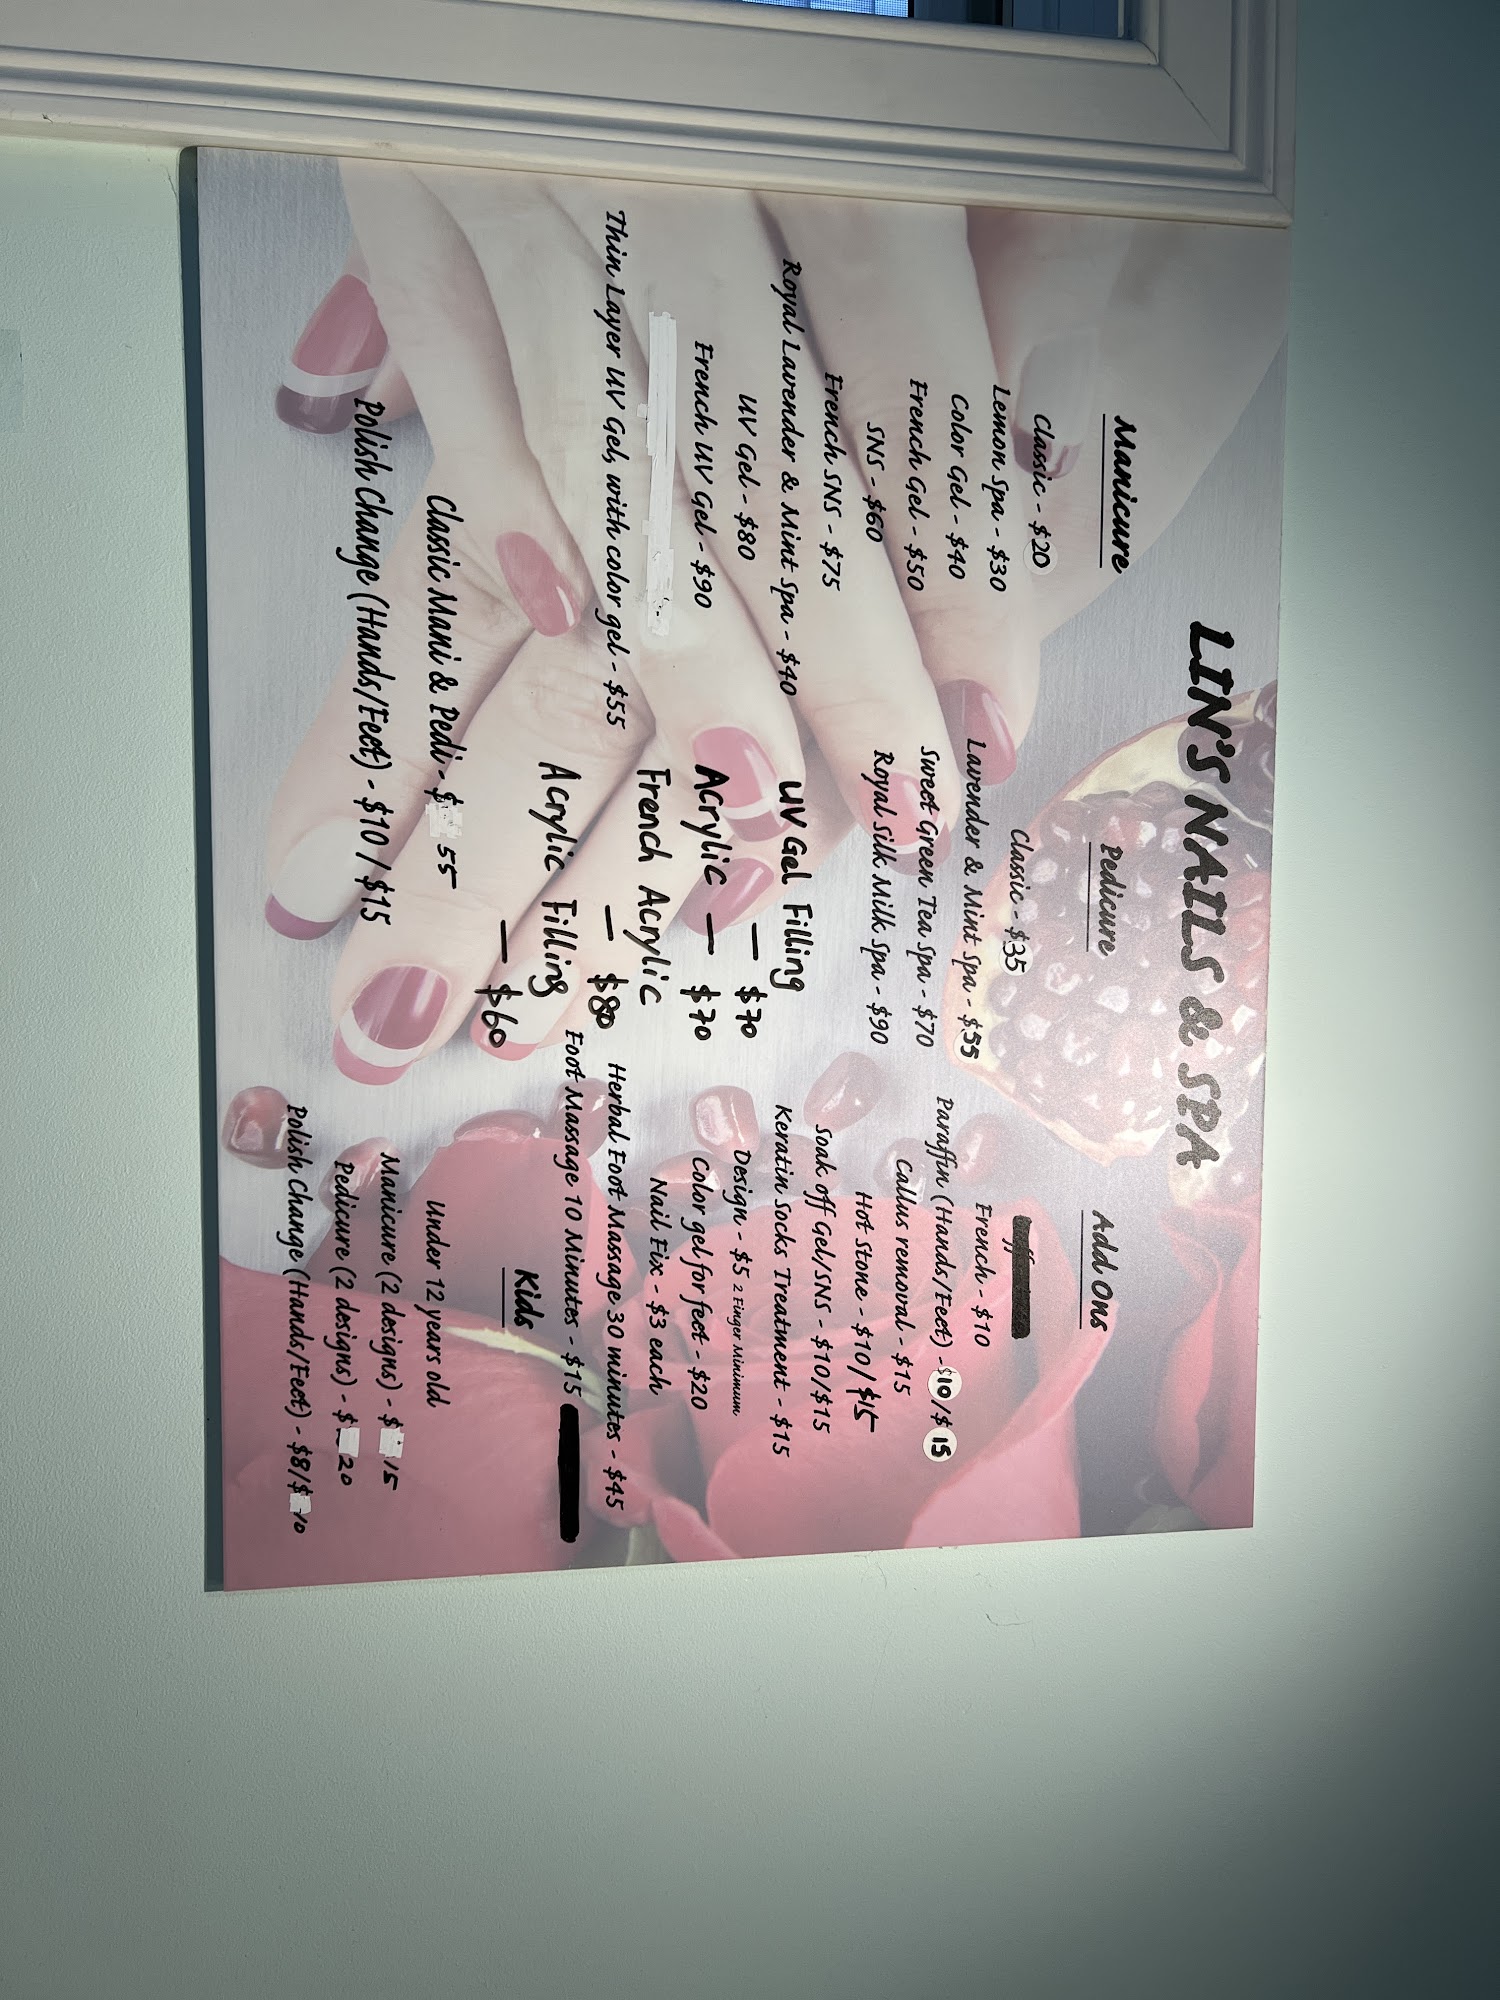 LIN'S NAILS & SPA
Manicure
Classic - $20
Lemon Spa - $30
Color Gel - $40
French Gel - $50
SNS - $60
French SNS - $75
Royal Lavender & Mint Spa - $40
UV Gel - $80
French UV Gel - $90
Thin Layer UV Gel, with color gel - $55
Classic Mani & Pedi - $55
Polish Change (Hands/Feet) - $10 / $15
Pedicure
Classic - $35
Lavender & Mint Spa - $55
Sweet Green Tea Spa - $70
Royal Silk Milk Spa - $90
UV Gel Filling
— $70
Acrylic — $70
French Acrylic
— $80
Acrylic Filling
— $60
Add Ons
French - $10
Paraffin (Hands/Feet) - $10/$15
Callus removal - $15
Hot Stone - $10/$15
Soak off Gel/SNS - $10/$15
Keratin Socks Treatment - $15
Design - $5 2 Finger Minimum
Color gel for feet - $20
Nail Fix - $3 each
Herbal Foot Massage 30 minutes - $45
Foot Massage 10 Minutes - $15
Kids
Under 12 years old
Manicure (2 designs) - $15
Pedicure (2 designs) - $20
Polish Change (Hands/Feet) - $8/$10